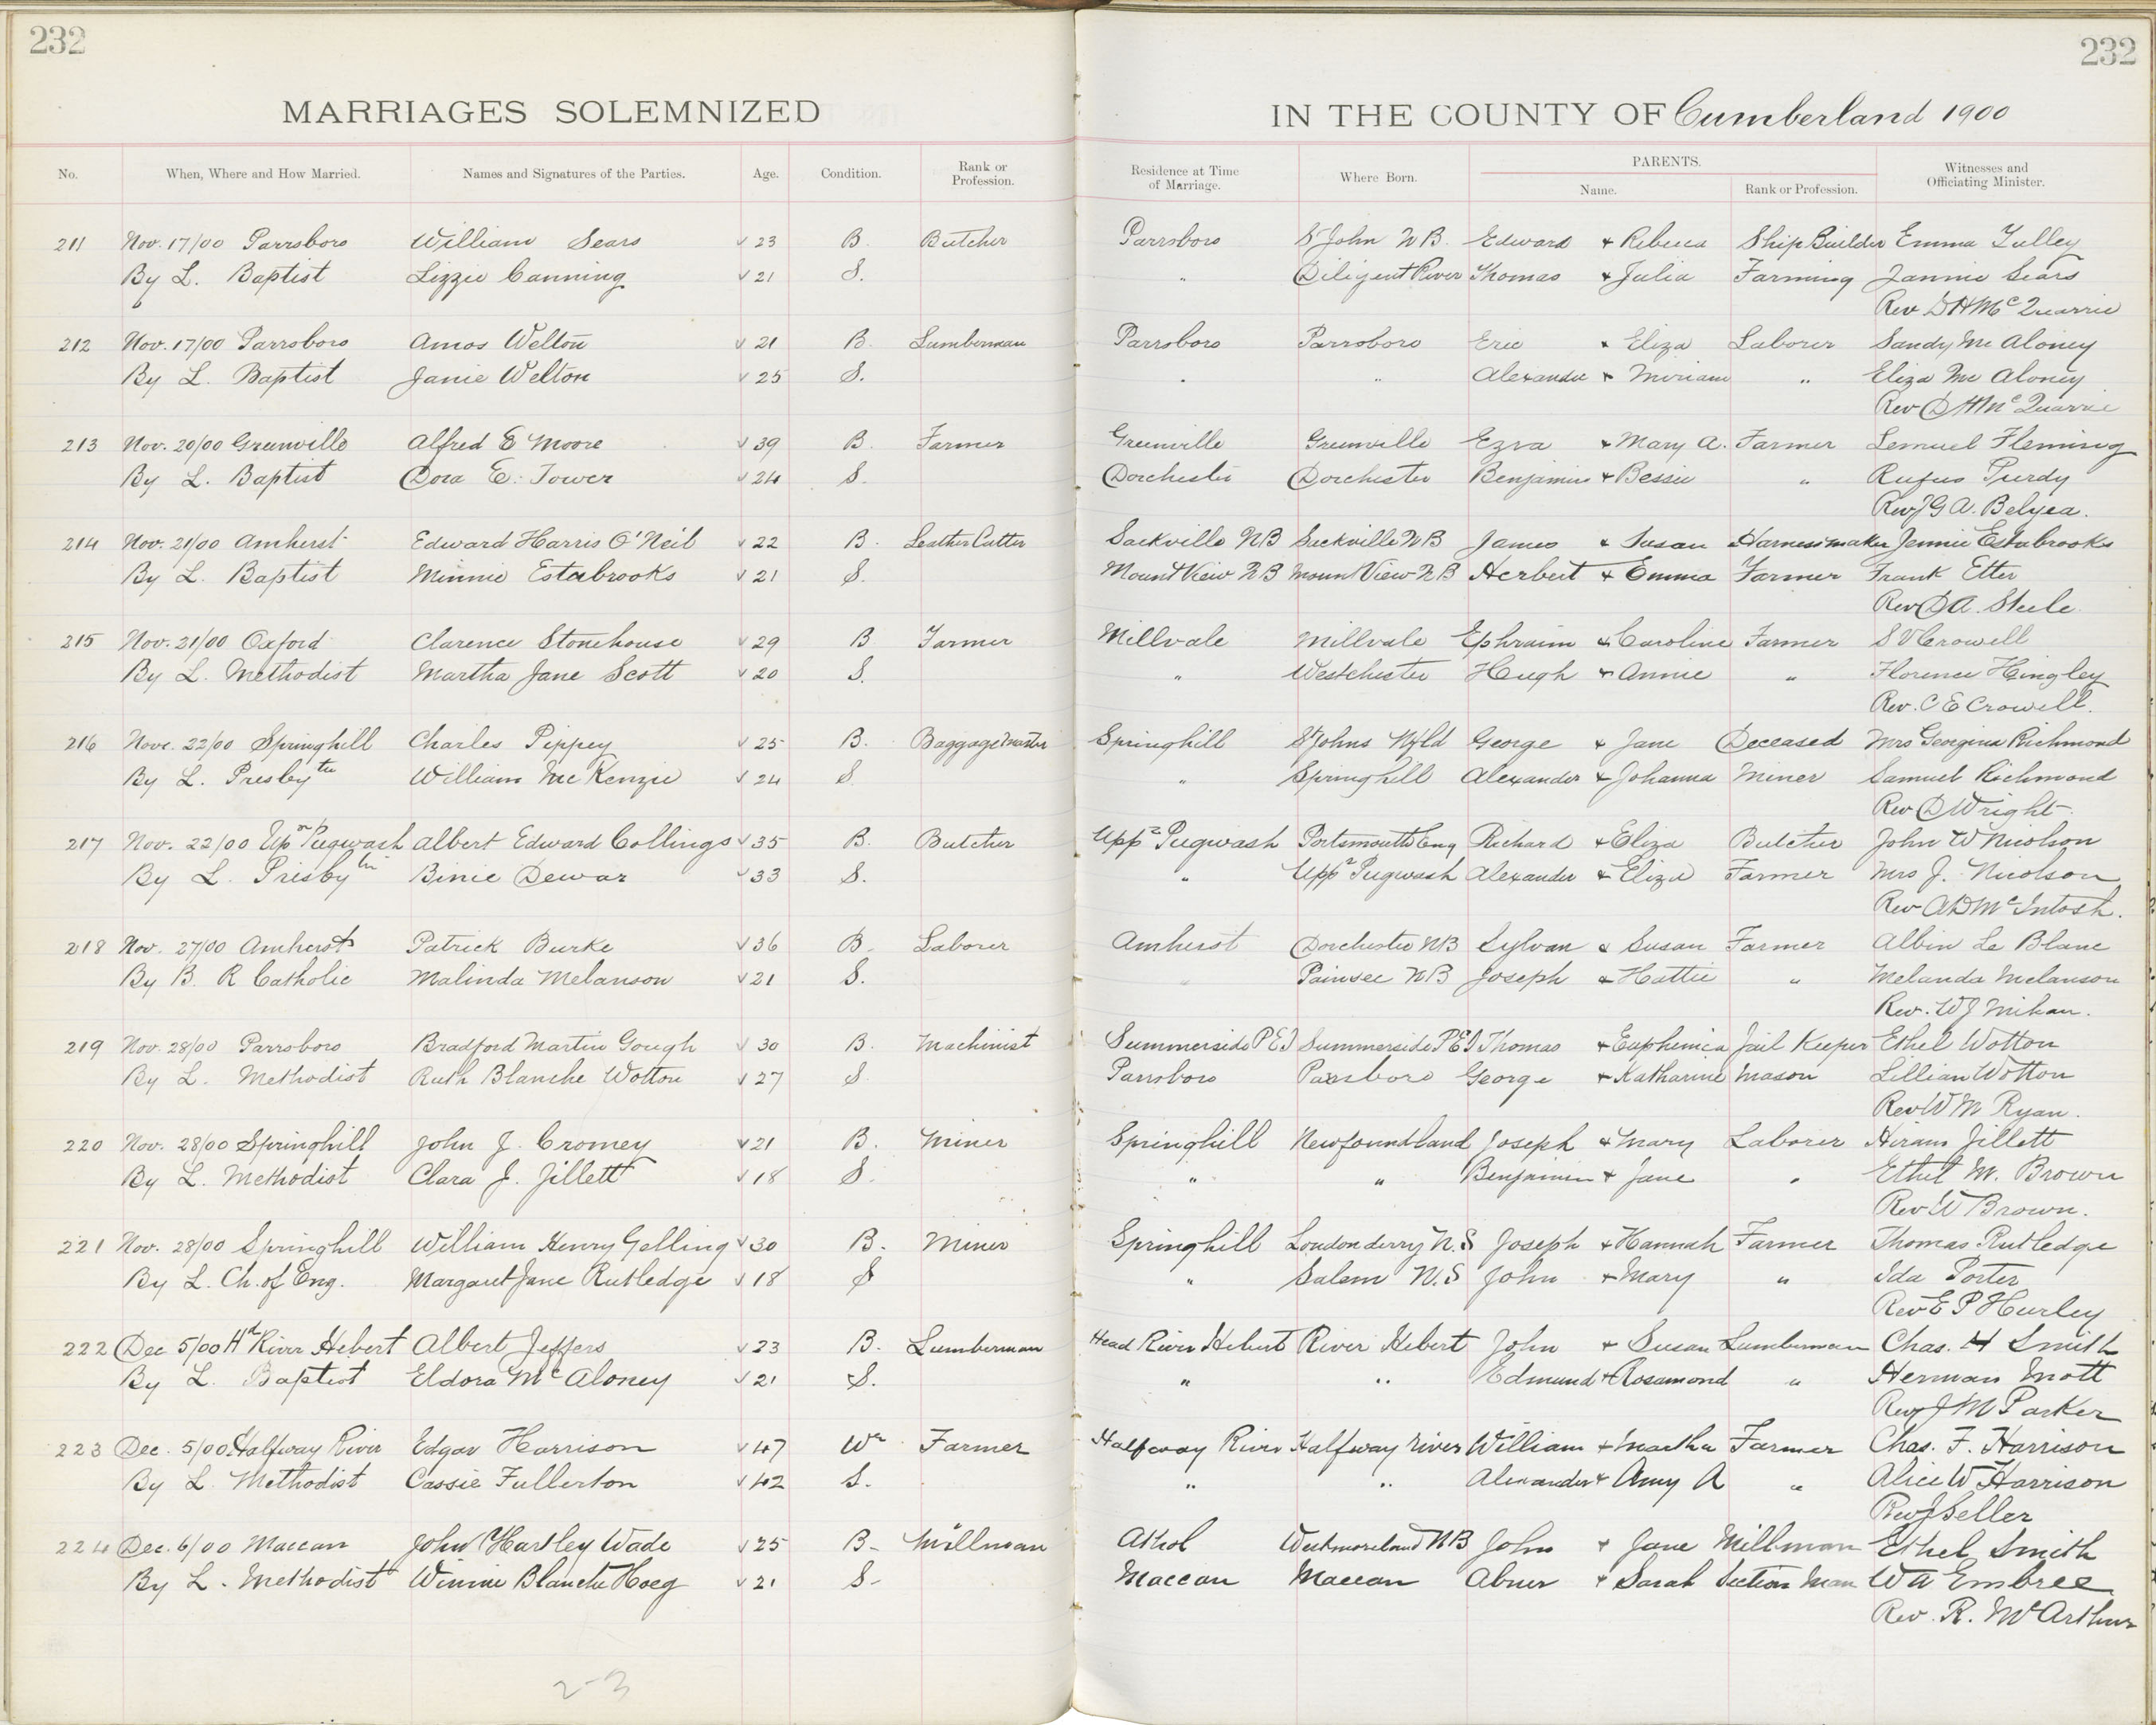 232
232
MARRIAGES SOLEMNIZED IN THE COUNTY OF Cumberland 1900
No. When, Where and How Married. Names and Signatures of the Parties. Age. Condition. Rank or Profession. Residence at Time of Marriage. Where Born. PARENTS. Name. Rank or Profession. Witnesses and Officiating Minister.
211 Nov. 17/00 Parrsboro William Sears √ 23 B. Butcher Parrsboro St John N B. Edward & Rebecca Ship Builder Emma Tulley
By L. Baptist Lizzie Canning √ 21 S. " Diligent River Thomas & Julia Farming Jannie Sears
Rev D H McQuarrie
212 Nov. 17/00 Parrsboro Amos Welton √ 21 B. Lumberman Parrsboro Parrsboro Eric & Eliza Laborer Sandy Mc Aloney
By L. Baptist Janie Welton √ 25 S. " " Alexander & Miriam " Eliza Mc Aloney
Rev D H McQuarrie
213 Nov. 20/00 Greenville Alfred E Moore √ 39 B. Farmer Greenville Greenville Ezra & Mary A. Farmer Lemuel Fleming
By L. Baptist Dora E. Tower √ 24 S. Dorchester Dorchester Benjamin & Bessie " Rufus Purdy
Rev J G A. Belyea.
214 Nov. 21/00 Amherst Edward Harris O'Neil √ 22 B. Leather Cutter Sackville NB Sackville NB James & Susan Harnessmaker Jennie Estabrooks
By L. Baptist Minnie Estabrooks √ 21 S. Mount View NB Mount View NB Herbert & Emma Farmer Frank Etter
Rev D A. Steele
215 Nov. 21/00 Oxford Clarence Stonehouse √ 29 B Farmer Millvale Millvale Ephraim & Caroline Farmer S V Crowell
By L. Methodist Martha Jane Scott √ 20 S. " Westchester Hugh & Annie " Florence Hingley
Rev. C E Crowell.
216 Nove. 22/00 Springhill Charles Pippey √ 25 B. Baggage Master Springhill St Johns Nfld George & Jane Deceased Mrs Georgina Richmond
By L. Presbyten William Mc Kenzie √ 24 S. " Springhill Alexander & Johanna Miner Samuel Richmond
Rev D Wright.
217 Nov. 22/00 Upr Pugwash Albert Edward Collings √ 35 B. Butcher Uppr Pugwash Portsmouth Eng Richard & Eliza Butcher John W Nicolson
By L. Presbyten Binie Dewar √ 33 S. " Uppr Pugwash Alexander & Eliza Farmer Mrs J. Nicolson
Rev A D McIntosh.
218 Nov. 27/00 Amherst Patrick Burke √ 36 B. Laborer Amherst Dorchester NB Sylvan & Susan Farmer Albin Le Blanc
By B. R Catholic Malinda Melanson √ 21 S. " Painsec NB Joseph & Hattie " Melanda Melanson
Rev. W J Mihan.
219 Nov. 28/00 Parrsboro Bradford Martin Gough √ 30 B. Machinist Summerside P E I Summerside P E I Thomas & Euphemica Jail Keeper Ethel Wotton
By L. Methodist Ruth Blanche Wotton √ 27 S. Parrsboro Parrsboro George & Katharine Mason Lillian Wotton
Rev W M Ryan.
220 Nov. 28/00 Springhill John J. Cromey √ 21 B. Miner Springhill Newfoundland Joseph & Mary Laborer Hiram Jillett
By L. Methodist Clara J. Jillett √ 18 S. " " Benjamin & Jane " Ethel M. Brown
Rev W Brown.
221 Nov. 28/00 Springhill William Henry Gelling √ 30 B. Miner Springhill Londonderry N.S Joseph & Hannah Farmer Thomas Rutledge
By L. Ch. of Eng. Margaret Jane Rutledge √ 18 S " Salem N.S John & Mary " Ida Porter
Rev E P Hurley
222 Dec 5/00 Hd River Hebert Albert Jeffers √ 23 B. Lumberman Head River Hebert River Hebert John & Susan Lumberman Chas. H Smith
By L. Baptist Eldora McAloney √ 21 S. " " Edmund & Rosamond " Herman Mott
Rev J M Parker
223 Dec. 5/00 Halfway River Edgar Harrison √ 47 Wr Farmer Halfway River Halfway River William & Martha Farmer Chas. F. Harrison
By L. Methodist Cassie Fullerton √ 42 S. " " Alexander & Amy A " Alice W Harrison
Rev J Seller
224 Dec. 6/00 Maccan John Hartley Wade √ 25 B. Millman Athol Westmoreland NB John & Jane Millman Ethel Smith
By L. Methodist Winnie Blanche Hoeg √ 21 S. Maccan Maccan Abner & Sarah Section Man W A Embree
Rev. R. McArthur
2-3